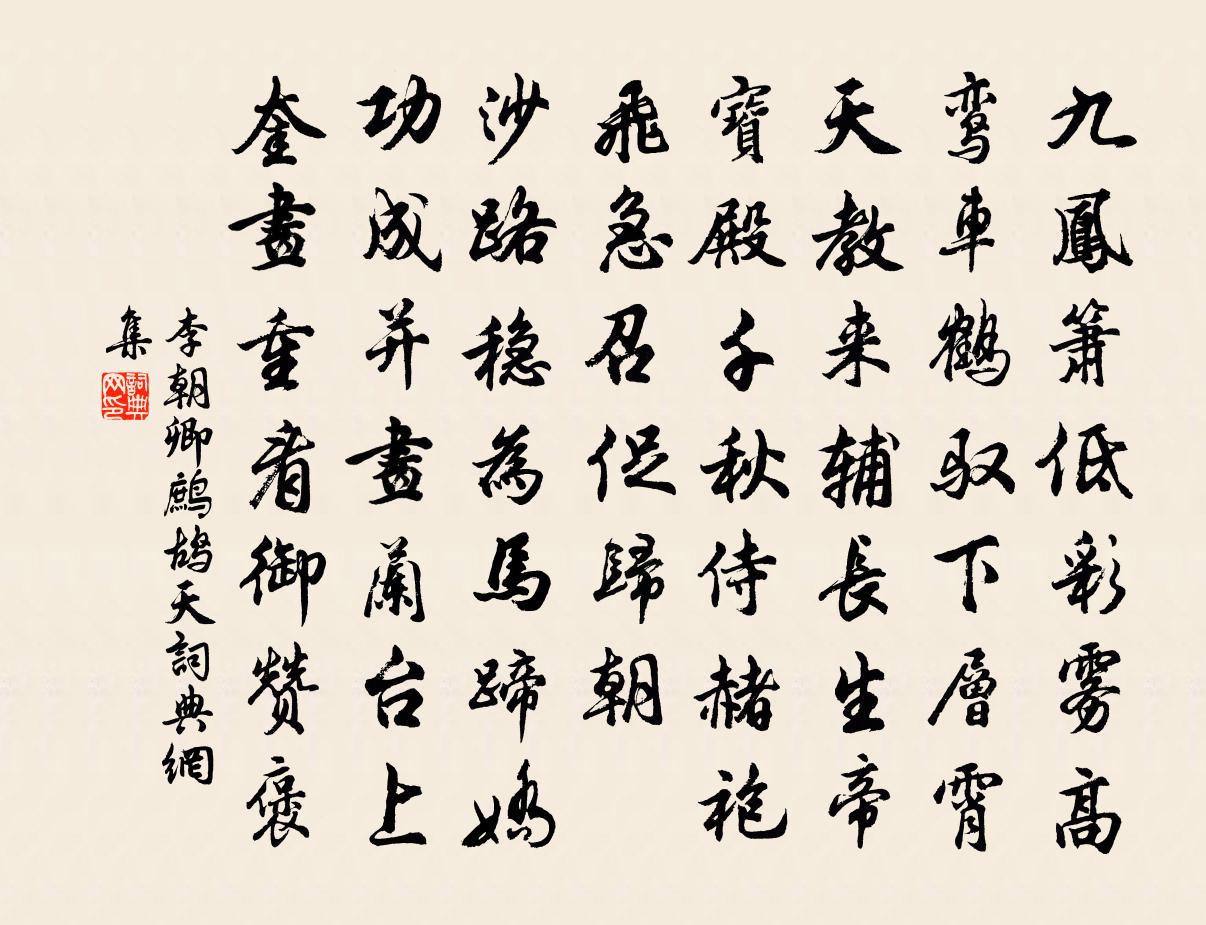 九鳳簫低彩雾高
鸾車鶴驭下層霄
天教来辅長生帝
寶殿千秋侍赭袍
飛急召促歸朝
沙路穏為馬蹄嬌
功成并畫蘭台上
奎畫重看御赞褒
李朝卿鷓鸪天詞典網
集
詞典
网印